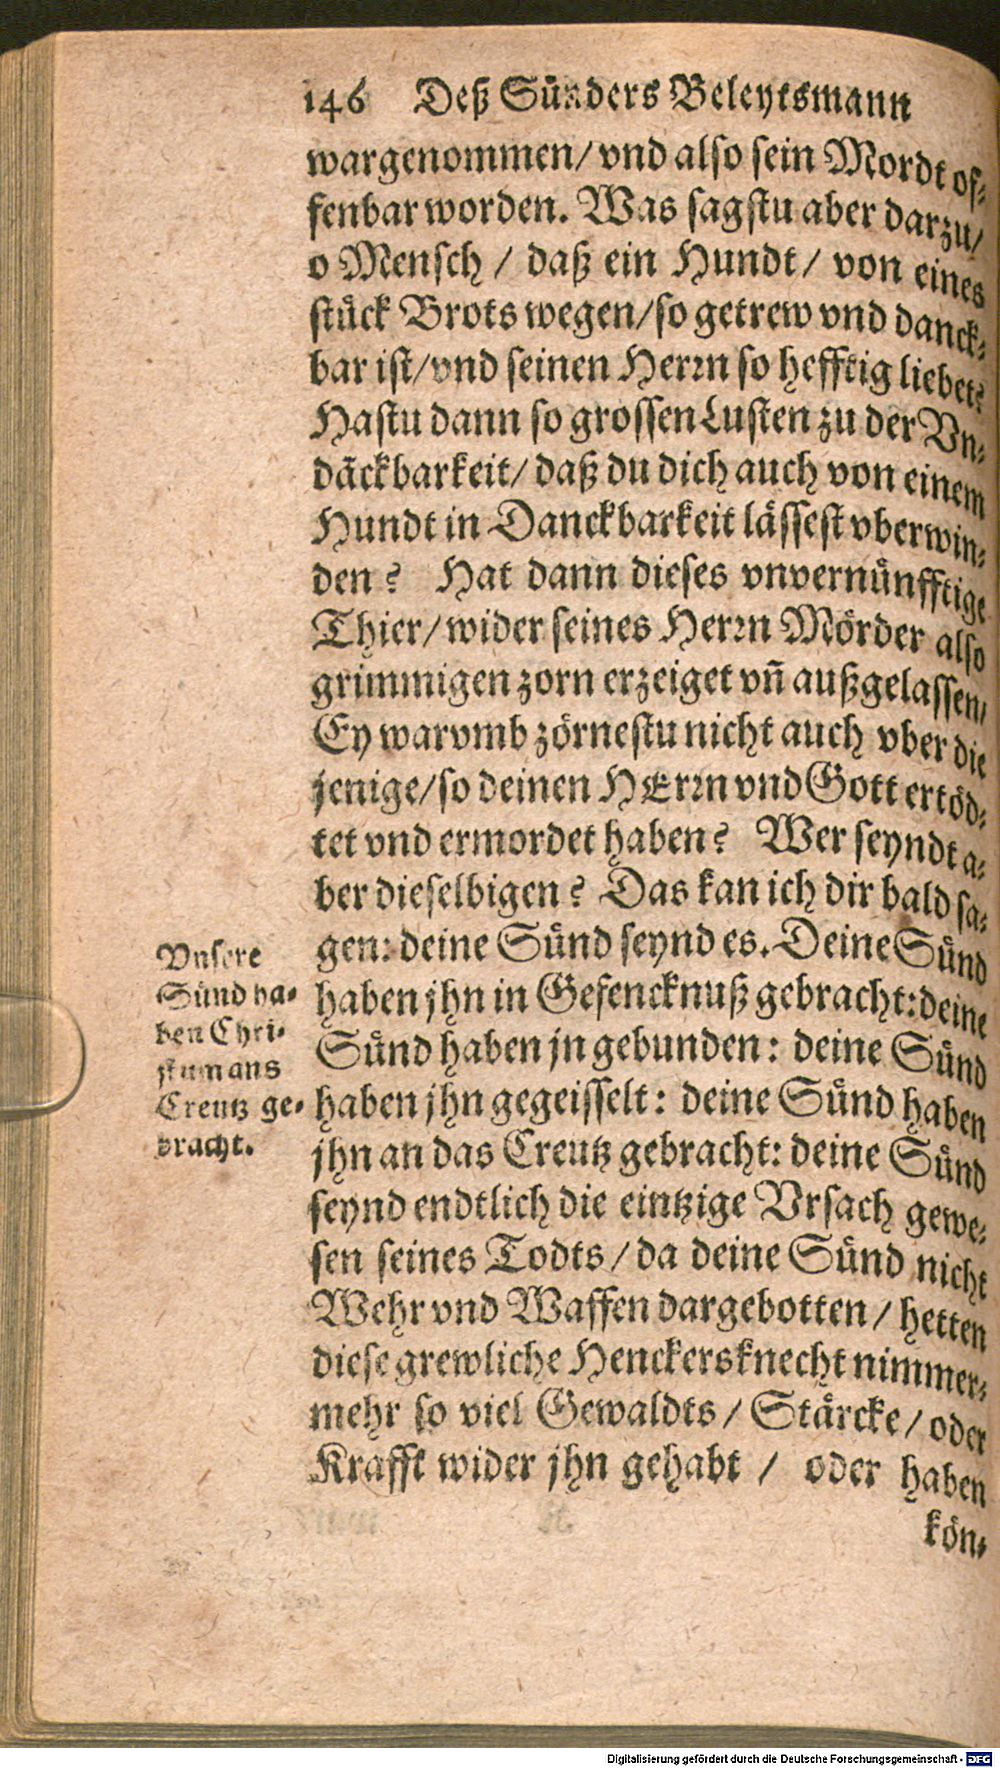 146 Deß Sünders Beleytsmann
wargenommen/ vnd also sein Mordt of-
fenbar worden. Was sagstu aber darzu/
o Mensch / daß ein Hundt/ von eines
stück Brots wegen/ so getrew vnd danck-
bar ist/ vnd seinen Herrn so hefftig liebet?
Hastu dann so grossen Lusten zu der Vn-
dāckbarkeit/ daß du dich auch von einem
Hundt in Danckbarkeit lässest vberwin-
den? Hat dann dieses vnvernünfftige
Thier/ wider seines Herrn Mörder also
grimmigen zorn erzeiget vñ außgelassen/
Ey warvmb zörnestu nicht auch vber die
jenige/ so deinen HErrn vnd Gott ertöd-
tet vnd ermordet haben? Wer seyndt a-
ber dieselbigen? Das kan ich dir bald sa-
gen: deine Sünd seynd es. Deine Sünd
haben jhn in Gefencknuß gebracht: deine
Sünd haben jn gebunden: deine Sünd
haben jhn gegeisselt: deine Sünd haben
jhn an das Creutz gebracht: deine Sünd
seynd endtlich die eintzige Vrsach gewe-
sen seines Todts/ da deine Sünd nicht
Wehr vnd Waffen dargebotten / hetten
diese grewliche Henckersknecht nimmer-
mehr so viel Gewaldts/ Stärcke/ oder
Krafft wider jhn gehabt / oder haben
kön-
Vnsere
Sünd ha-
ben Chri-
stum ans
Creutz ge-
bracht.
Digitalisierung gefördert durch die Deutsche Forschungsgemeinschaft - DFG